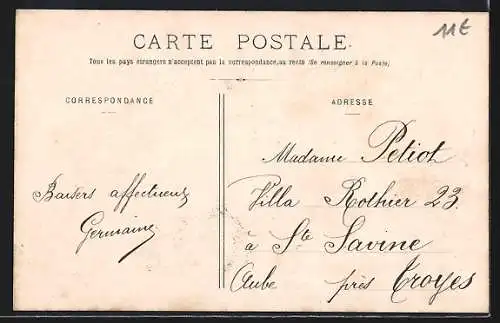 11€
CARTE POSTALE
Tous les pays étrangers n'acceptent pas la correspondance au recto (Se renseigner à la Poste)
CORRESPONDANCE
ADRESSE
Baisers affectueux
Germaine
Madame Petiot
Villa Rothier 23
à Ste Savine
Aube près Troyes